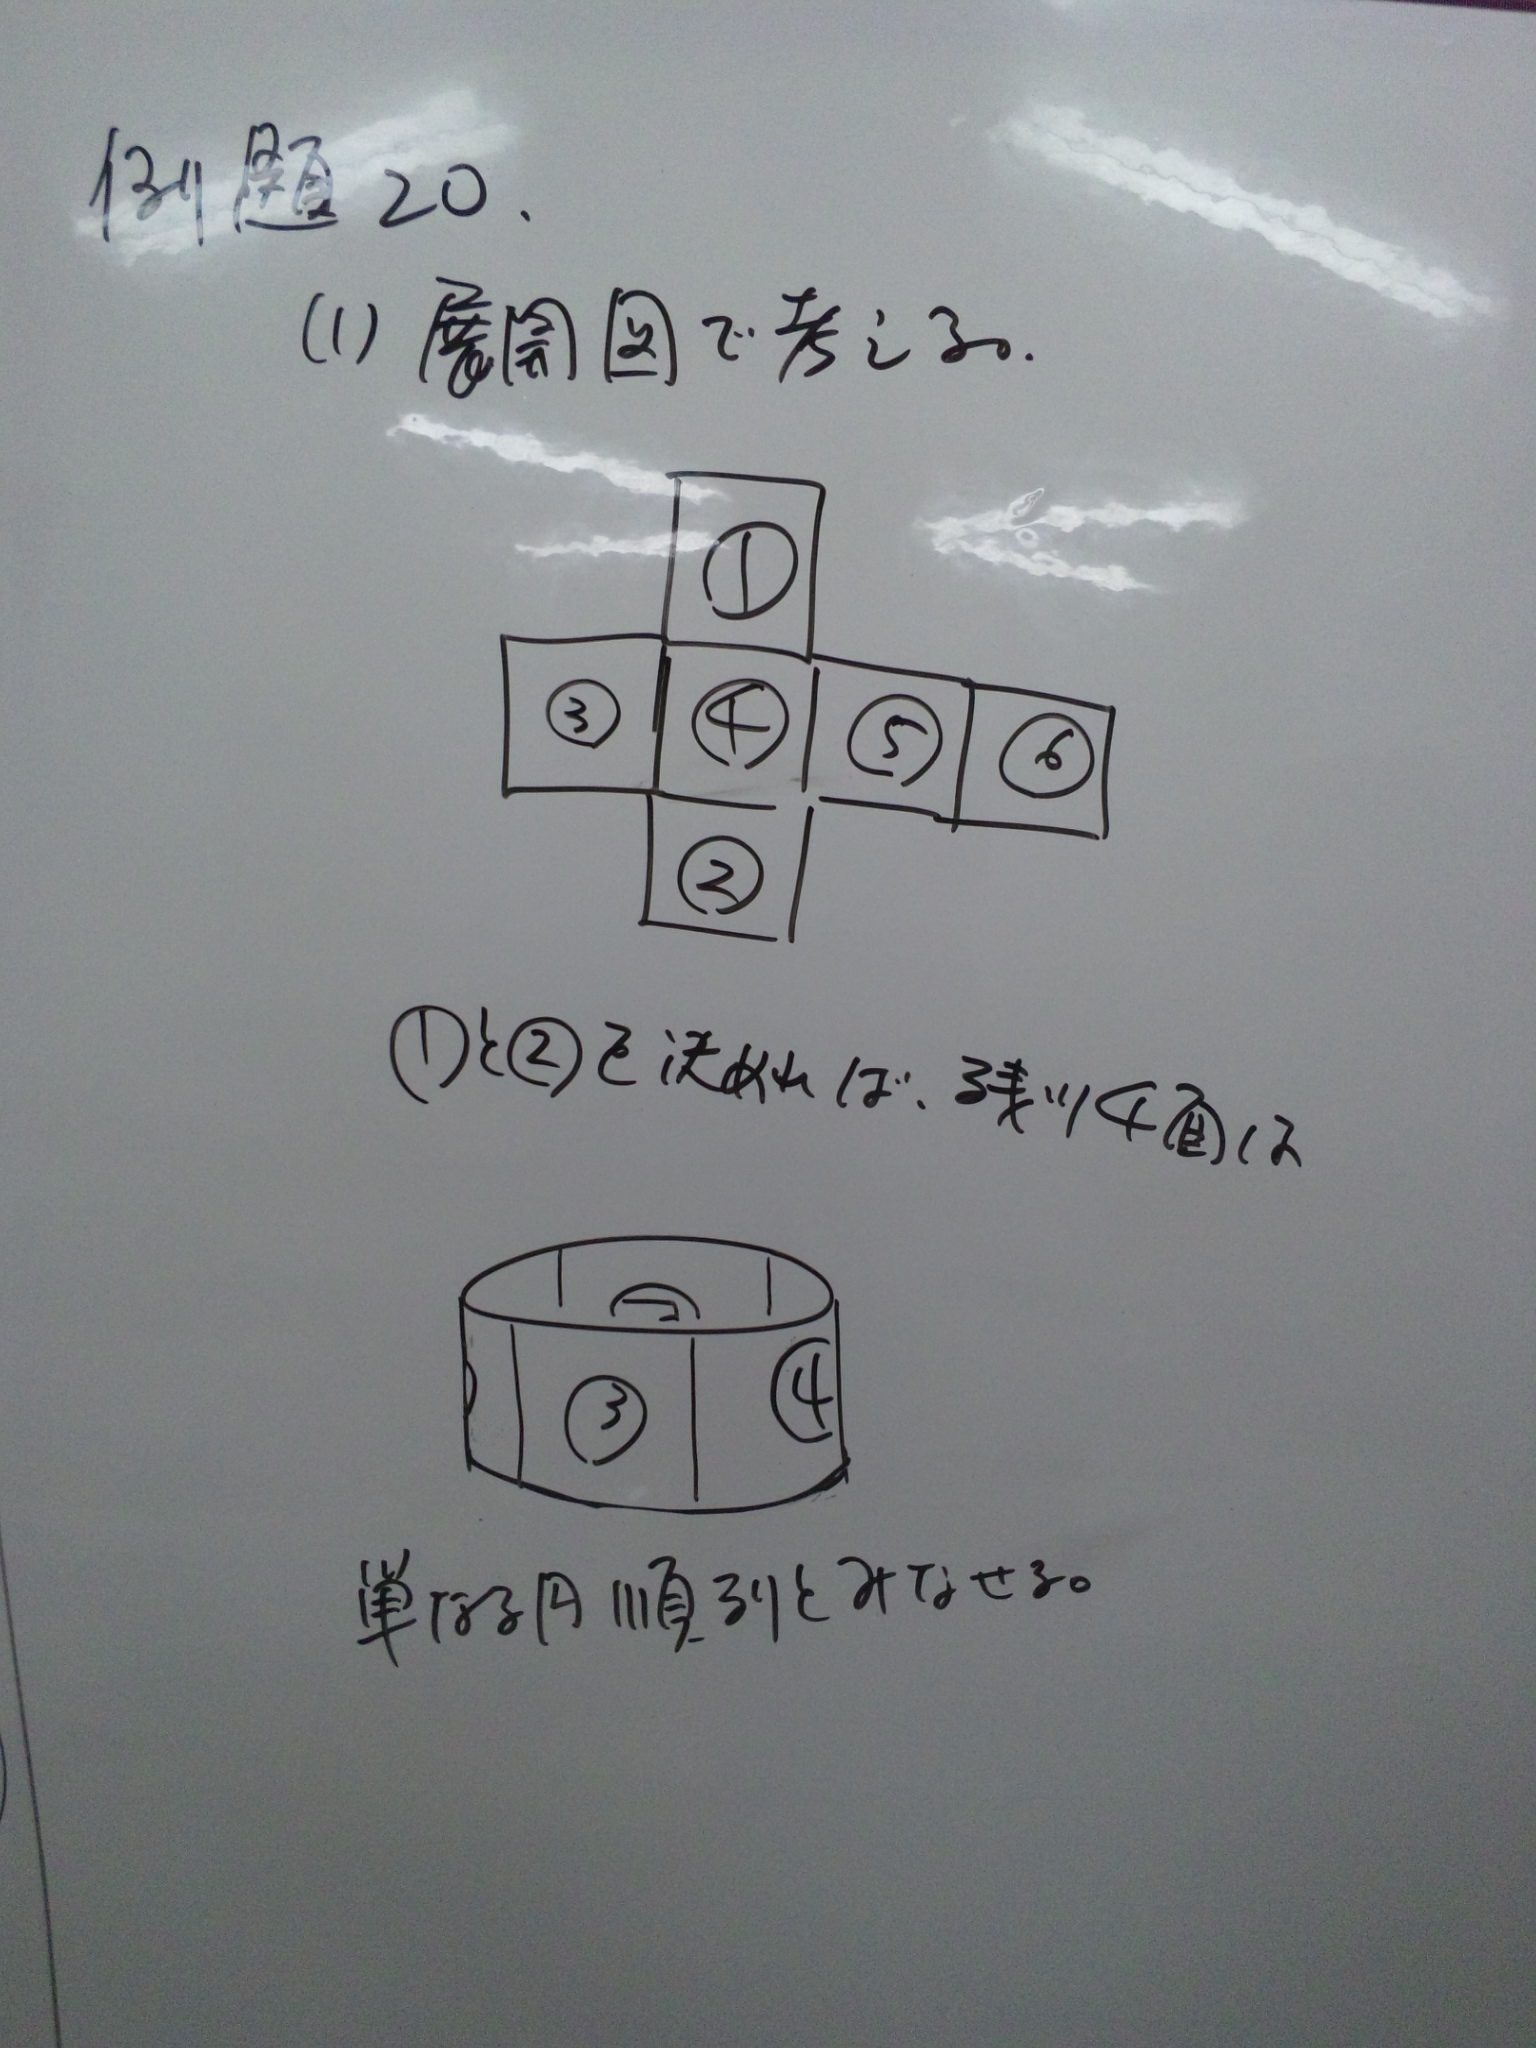 例題20.
(1) 展開図で考える。
①
③ ④ ⑤ ⑥
②
①と②を決めれば、残り4面は
③ ④
単なる円順列とみなせる。